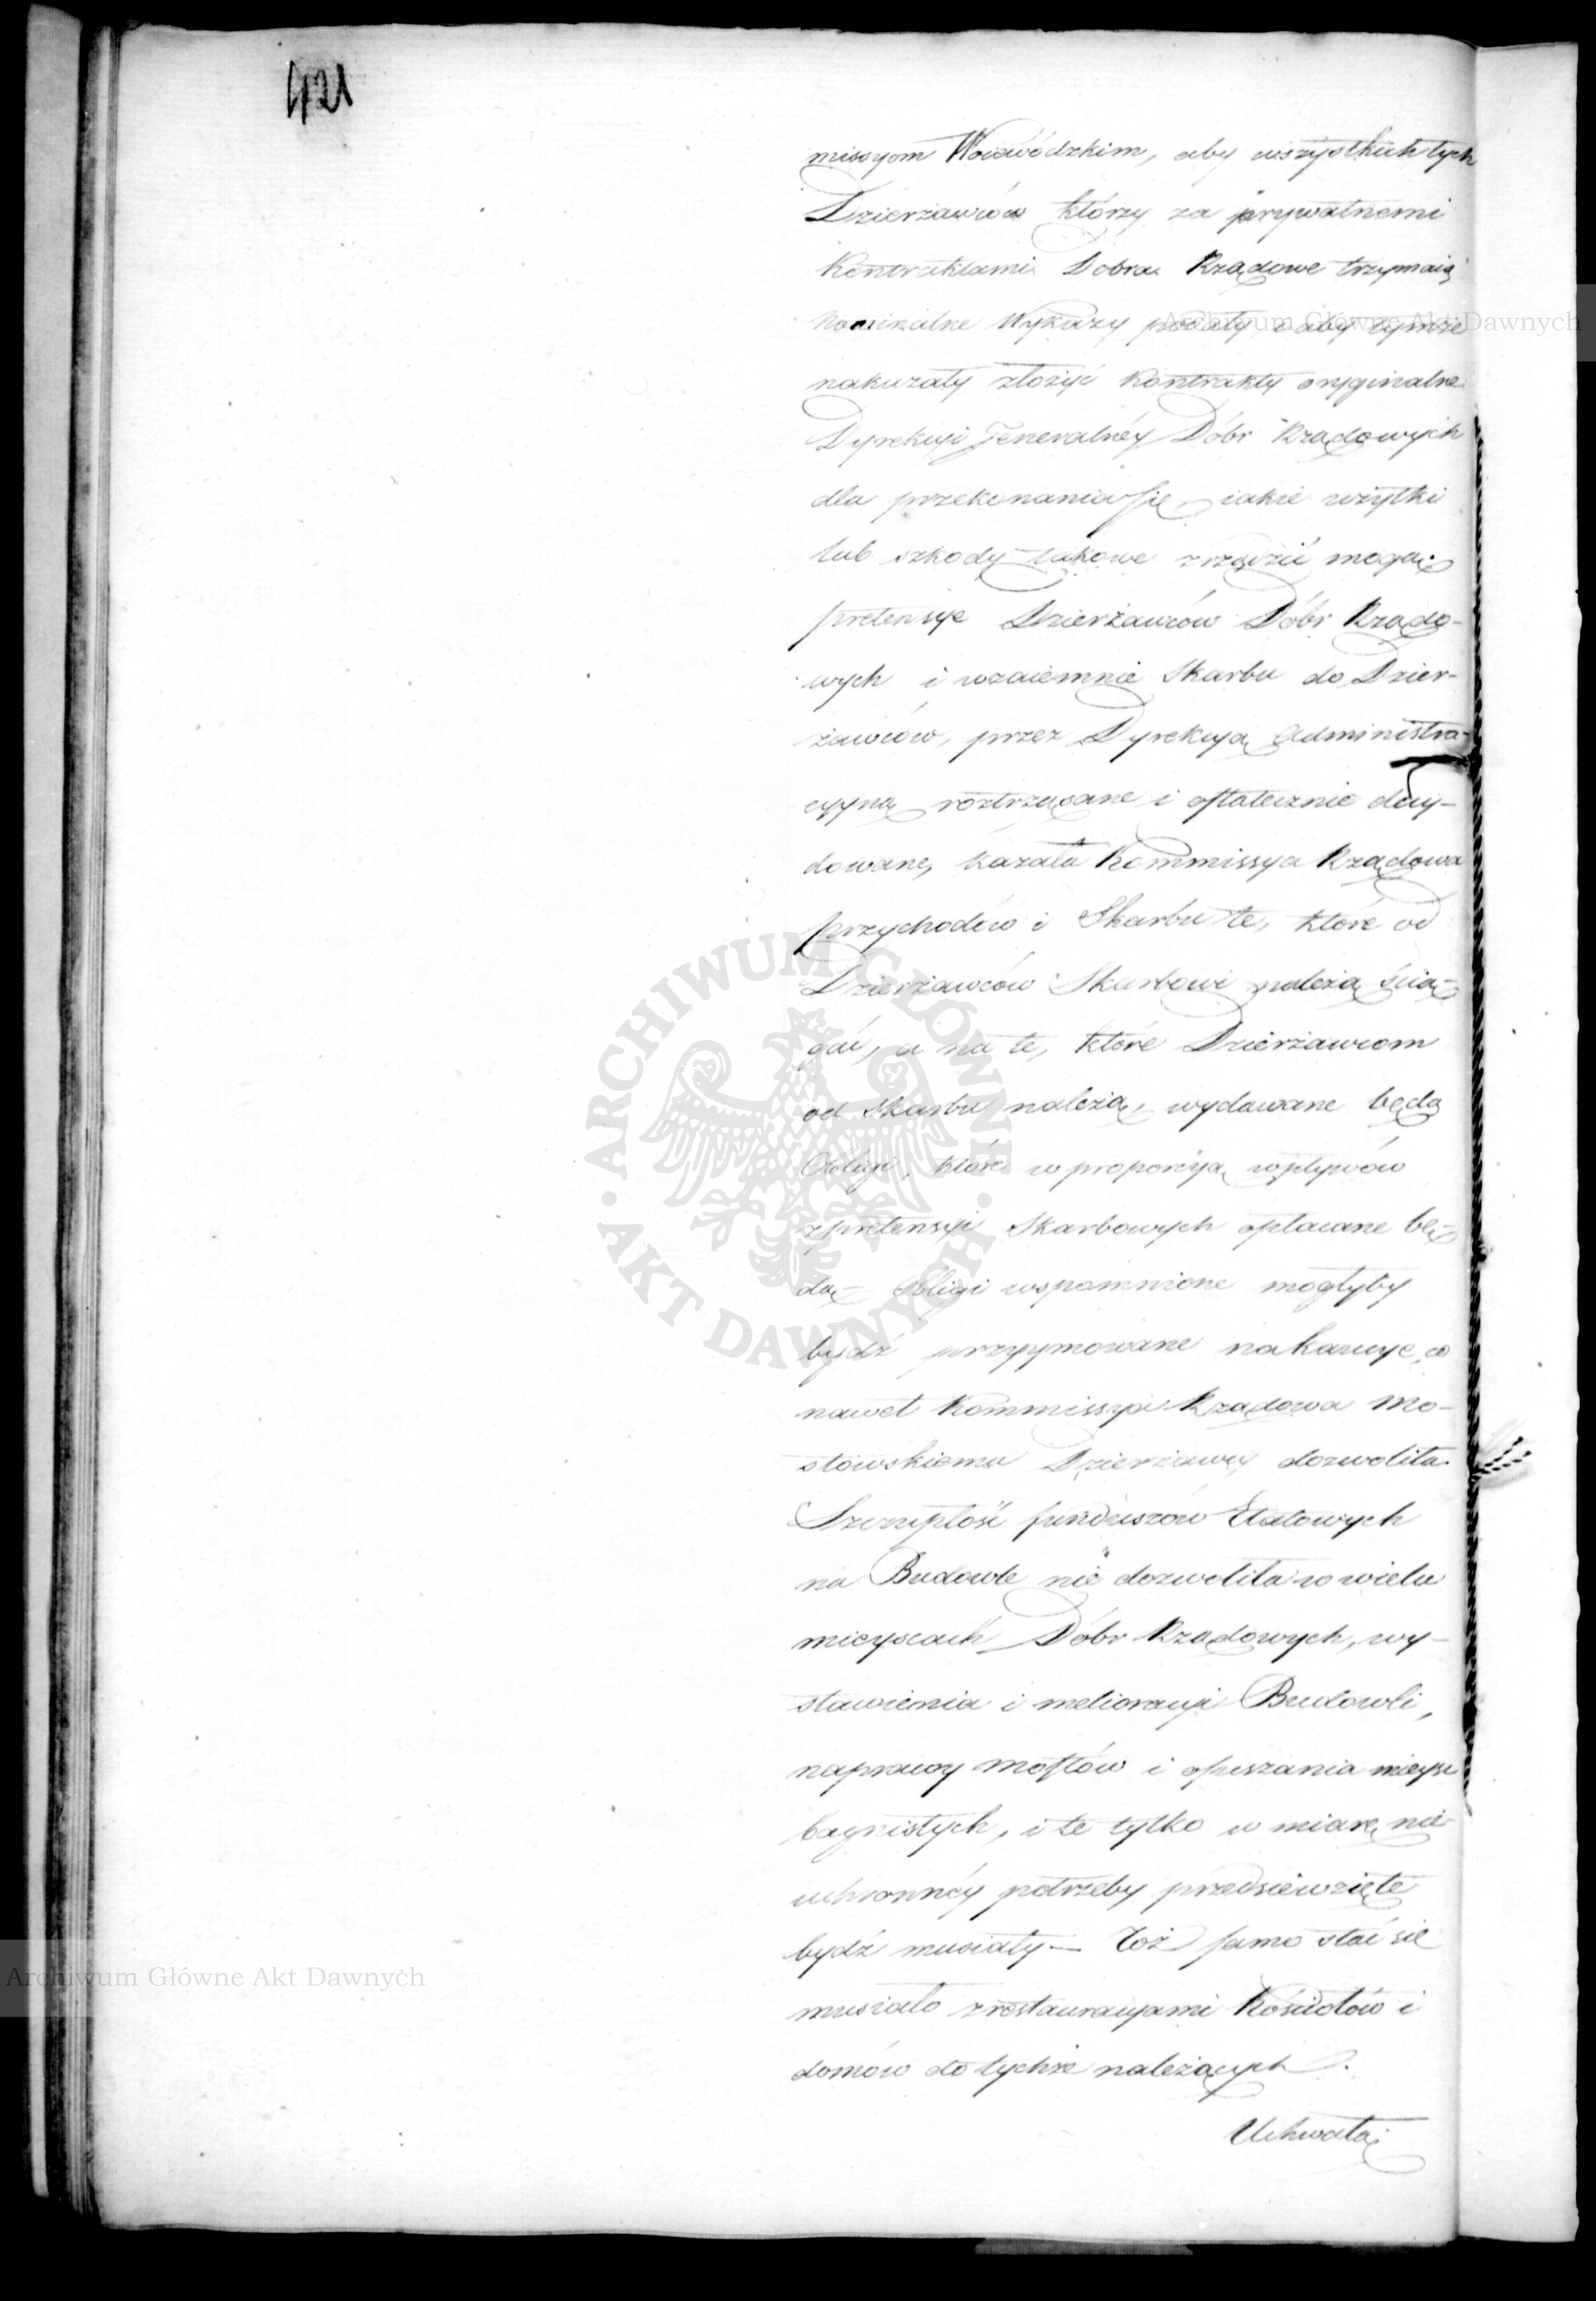 421
missyom Woiewódzkim, aby wszystkich tych
Dzierżawców którzy za prywatnemi
Kontraktami Dobra Rządowe trzymaią
Nominalne Wykazy podały i aby tymże
nakazały złożyć Kontrakty oryginalne
Dyrekcyi Jeneralnéy Dóbr Rządowych
dla przekonania się, iakie użytki
lub szkody takowe zrządzić mogą.
pretensye Dzierżawców Dóbr Rządo-
wych i wzaiemnie Skarbu do Dzier-
żawców, przez Dyrekcyą Administra-
cyyną roztrząsane i ostatecznie decy-
dowane, kazała Kommissya Rządowa
przychodów i Skarbu te, które od
Dzierżawców Skarbowi należą ścią-
gać, a na te, które Dzierżawcom
od Skarbu należą, wydawane będą
Obligi, które w proporcyą wpływów
z pretensyi Skarbowych opłacane bę-
dą - Obligi wspomnione mogłyby
bydź przyymowane na kaucye, co
nawet Kommissya Rządowa Mo-
stowskiemu Dzierżawcy dozwoliła.
Szczupłość funduszów Etatowych
na Budowle nie dozwoliła w wielu
mieyscach Dóbr Rządowych, wy-
stawienia i melioracyi Budowli,
naprawy mostów i osuszania mieysc
bagnistych, i te tylko w miarę nie-
uchronnéy potrzeby przedsięwzięte
bydź musiały — Toż samo stać się
musiało z restauracyami Kościołów i
domów do tychże należących.
Uchwałą
Archiwum Główne Akt Dawnych
Archiwum Główne Akt Dawnych
ARCHIWUM GŁÓWNE · AKT DAWNYCH ·